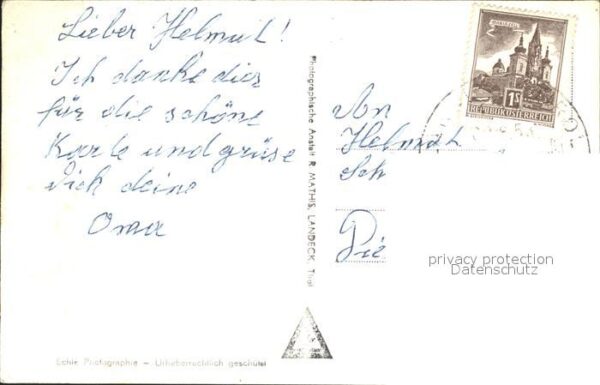 Lieber Helmut!
Ich danke dir
für die schöne
Karte und grüse
Dich deine
Oma
Photographische Anstalt R. MATHIS, LANDECK, Tirol
An
Helmut
Sch
Pie
MARIAZELL
1S
REPUBLIK ÖSTERREICH
privacy protection
Datenschutz
Echte Photographie – Urheberrechtlich geschützt